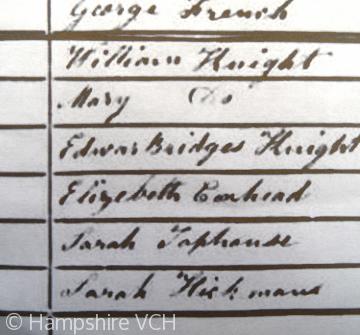 George French
William Knight
Mary Do
Edwar Bridges Knight
Elizebeth Coxhead
Sarah Tophouse
Sarah Hickmans
© Hampshire VCH